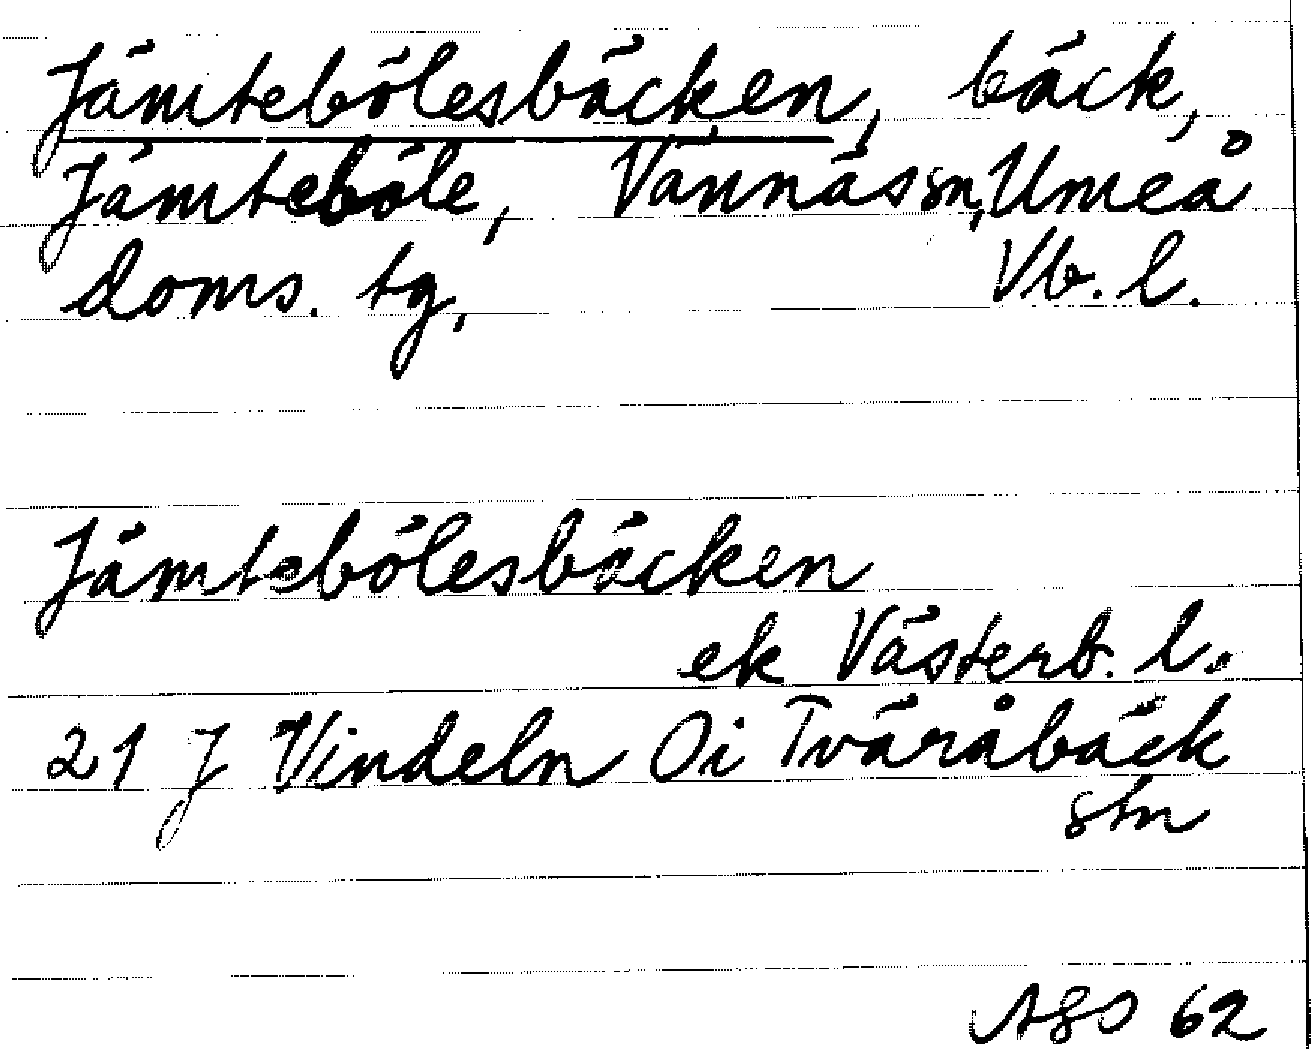 Jämtebölesbäcken, bäck,
Jämteböle, Vännäs sn, Umeå
doms. tg, Vb. l.
Jämtebölesbäcken
ek Västerb. l.
21 J Vindeln Oi Tväråbäck
stn
AGS 62